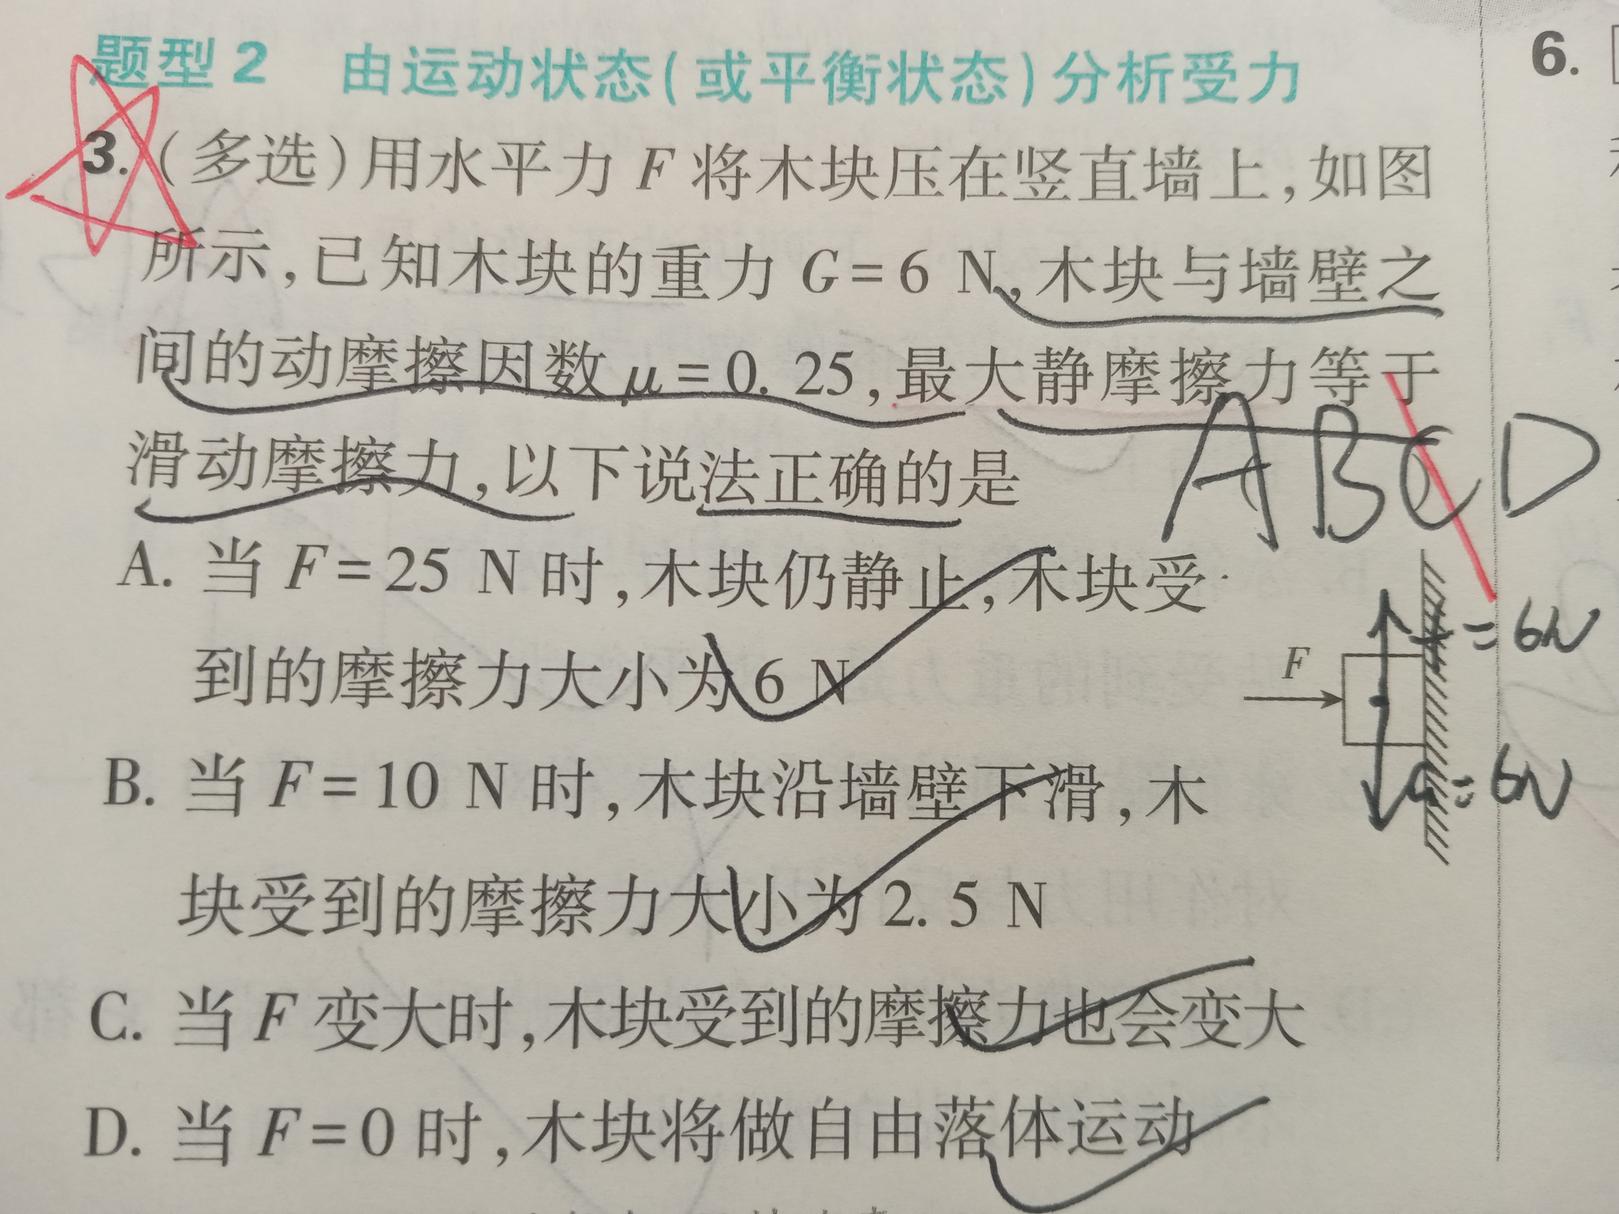 题型2 由运动状态(或平衡状态)分析受力
6.
3.(多选)用水平力 F 将木块压在竖直墙上,如图
所示,已知木块的重力 G=6 N,木块与墙壁之
间的动摩擦因数 μ=0.25,最大静摩擦力等于
滑动摩擦力,以下说法正确的是
ABCD
A. 当 F=25 N 时,木块仍静止,木块受
到的摩擦力大小为 6 N
=6N
F
G=6N
B. 当 F=10 N 时,木块沿墙壁下滑,木
块受到的摩擦力大小为 2.5 N
C. 当 F 变大时,木块受到的摩擦力也会变大
D. 当 F=0 时,木块将做自由落体运动